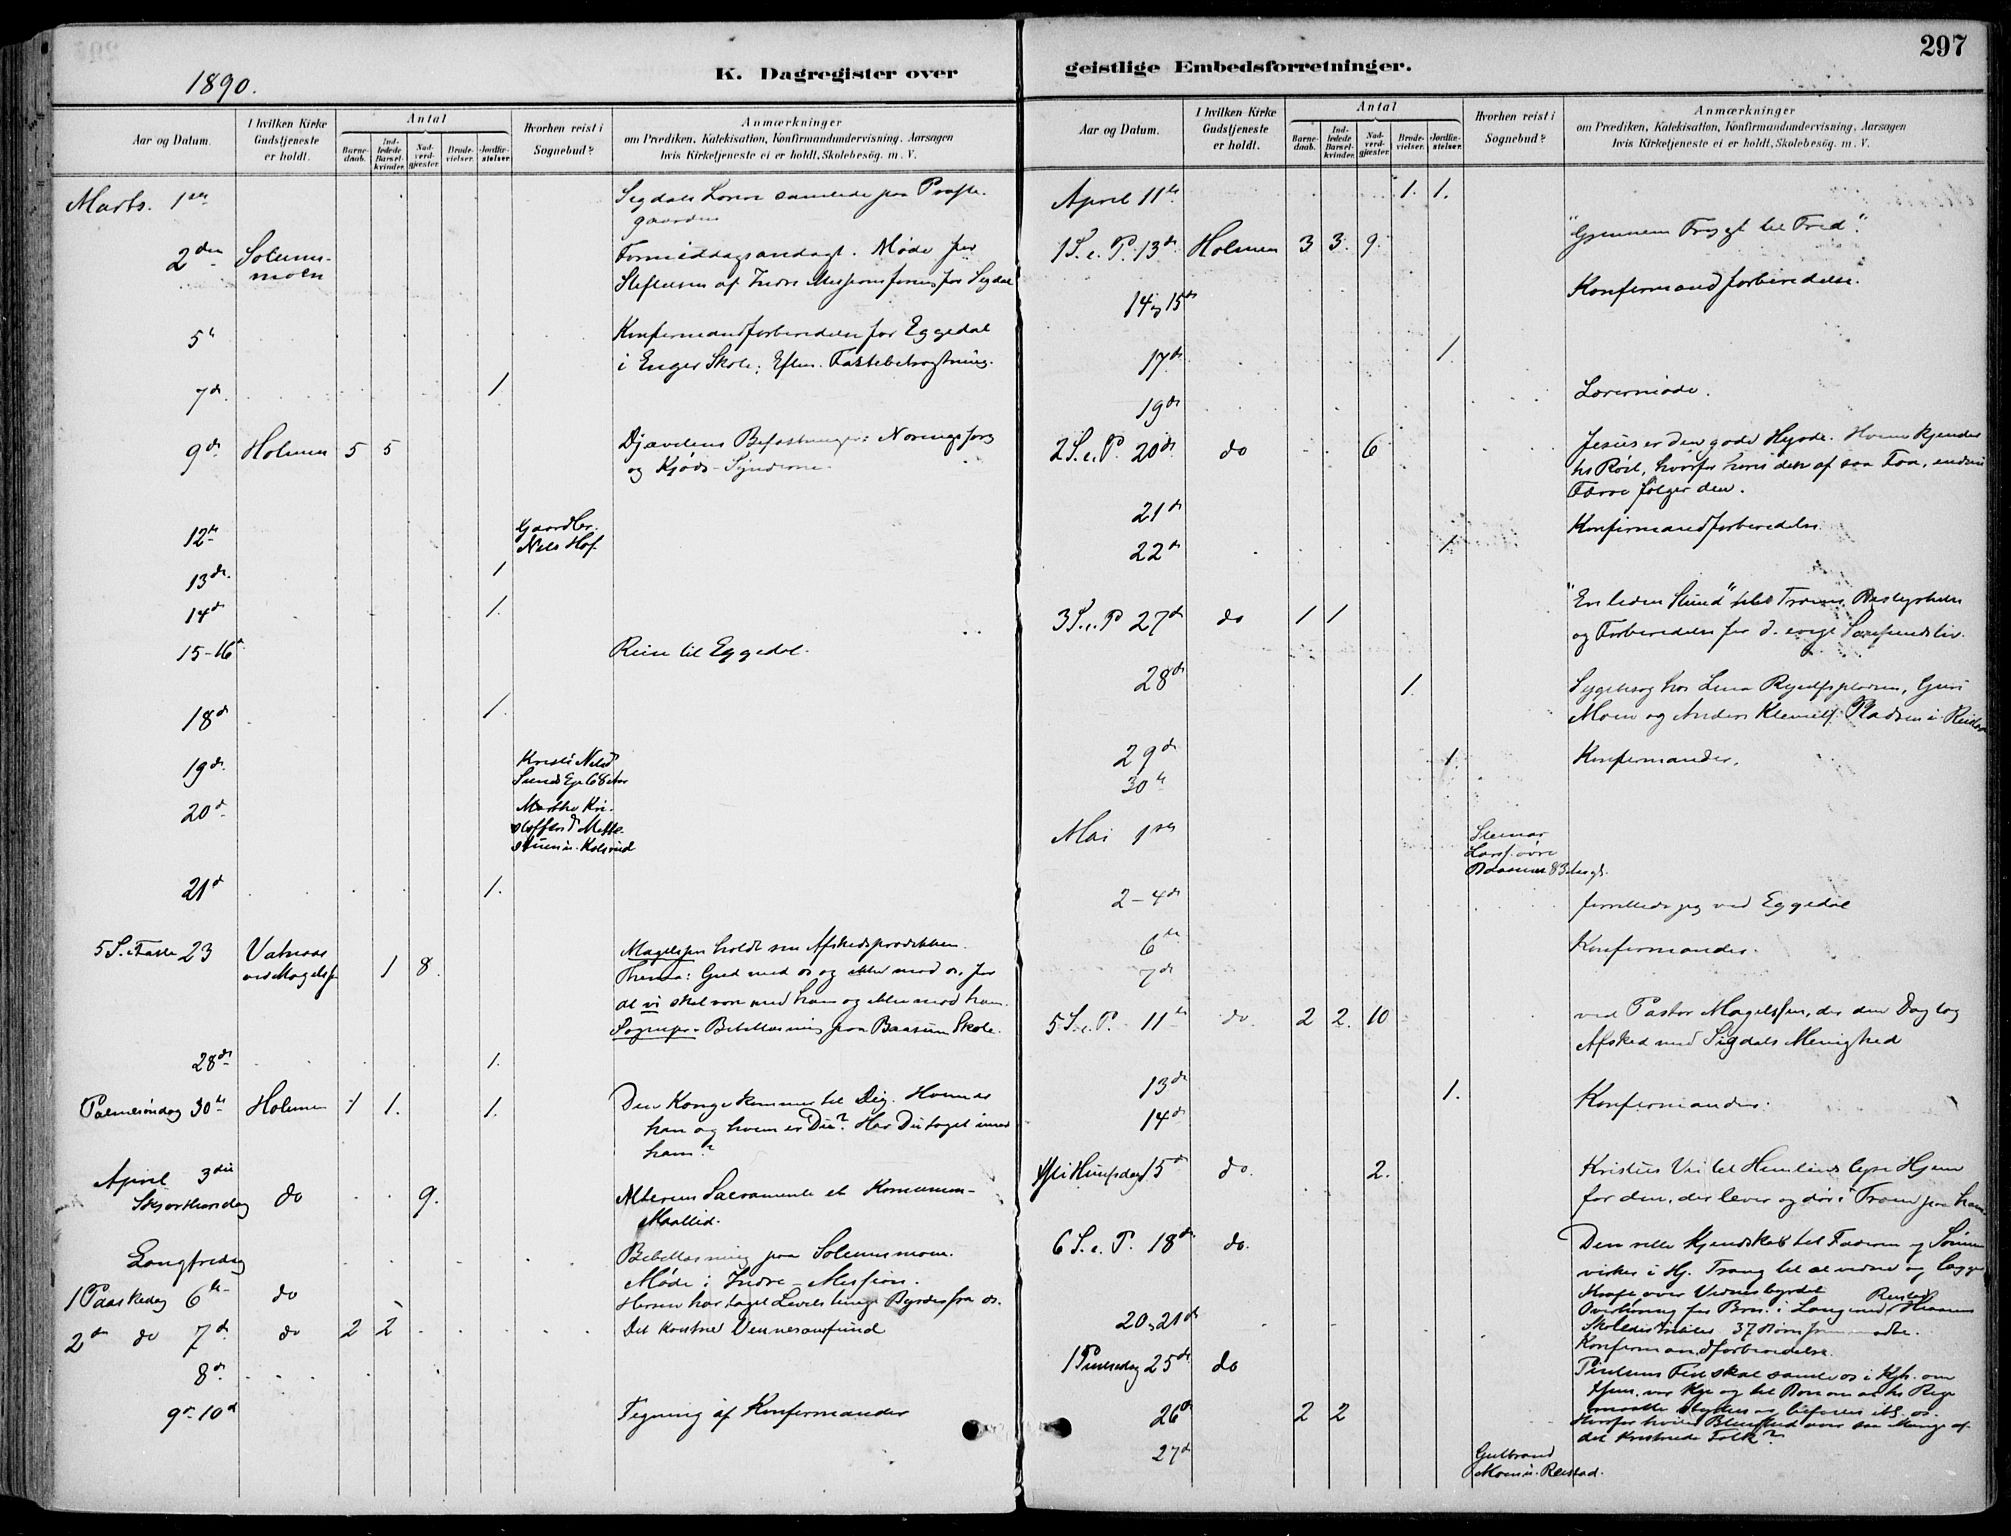 297
1890.
K. Dagregister over
geistlige Embedsforretninger.
Aar og Datum.
I hvilken Kirke
Gudstjeneste
er holdt.
Antal
Barne-
daab.
Ind-
ledede
Barsel-
kvinder.
Nad-
verd-
gjæster.
Brude-
vielser.
Jordfæ-
stelser.
Hvorhen reist i
Sognebud?
Anmærkninger
om Prædiken, Katekisation, Konfirmandundervisning, Aarsagen
hvis Kirketjeneste ei er holdt, Skolebesøg. m. V.
Marts. 1ste
Sigdals Lærere samlede paa Præste-
gaarden
2den Solums-
moen
Formiddagsandagt. Møde for
Stiftelsen af Indre Missionsforening for Sigdal
5te
Konfirmandforberedelse for Eggedal
i Enger Skole; Efterm. Fastebetragtning.
7de 1
9de Holmen 5 5
Djævelens Befæstninger:
og Kjøds-Synderne
12te Gaardbr.
Nels Hof
13de 1
14de 1.
15-16de Reise til Eggedal.
18de 1.
19de Kristi Nelsd
68 Aar
20de Marthe Kri-
stoffersd
21de 1.
5 S. i Faste 23 Vatnaas
ved Magelssen 1 8.
Magelssen holdt sin Afskedsprædiken.
Thema: Gud med os og ikke mod os, for
at vi skal være med ham og ikke mod ham.
Bibellæsning paa Baasum Skole.
28de 1.
Palmesøndag 30te Holmen 1 1. 1.
Din Konge kommer til Dig. Hvem er
han og hvem er Du? Har Du taget imod
ham?
April 3die
Skjærthorsdag do 9.
Alterens Sacramente et
Maaltid.
Langfredag
Bibellæsning paa Solumsmoen.
Møde i Indre-Mission.
1 Paaskedag 6te do
Herren har taget Livets tunge Byrder fra os.
2den do 7de do 2 2
Det kristne Vennesamfund
8de
9de-10de Tegning af Konfirmander
Aar og Datum.
I hvilken Kirke
Gudstjeneste
er holdt.
Antal
Barne-
daab.
Ind-
ledede
Barsel-
kvinder.
Nad-
verd-
gjæster.
Brude-
vielser.
Jordfæ-
stelser.
Hvorhen reist i
Sognebud?
Anmærkninger
om Prædiken, Katekisation, Konfirmandundervisning, Aarsagen
hvis Kirketjeneste ei er holdt, Skolebesøg. m. V.
April 11te 1. 1.
1 S. e. P. 13de Holmen 3 3. 9.
"Gjennem Frygt til Fred".
14 og 15de Konfirmandforberedelse.
17de 1
19de Lærermøde.
2 S. e. P. 20de do 6
Jesus er den gode Hyrde. Hvem kjender
hs Røst, hvorfor høres den af saa Faa, endnu
Færre følger den.
21de Konfirmandforberedelse
22de 1.
3 S. e. P 27de do 1 1
"En liden Stund" Troens
og Forberedelse for d. evige Samfundsliv.
28de 1.
Sygebesøg hos Lena
Moen og Anders Pladsen i
29de 1. Konfirmander.
30te
Mai 1ste Steinar
Larss. øvre
Baasum 83
2-4de forrettede jeg ved Eggedal
6te Konfirmander.
7de
5 S. e. P. 11te do. 2 2. 10
ved Pastor Magelssen, der den Dag tog
Afsked med Sigdals Menighed
13de 1. Konfirmander.
14de
Kristi Himfsdag 15de do. 2.
Kristus Vei til Himlens lyse Hjem
for den, der lever og dør i Troen paa ham
6 S. e. P. 18de do.
Den rette Kjendskab til Faderen og Sønnen
virker i Hj. Trang til at vidne og lægge
Kraft over Vidnesbyrdet
20, 21de
37 Børn
Konfirmandforberedelse.
1 Pinsedag 25de do
Pinsens skal samle os i
26de 2 2
det kristnede Folk?
27de Gulbrand
Moen u. Restad.